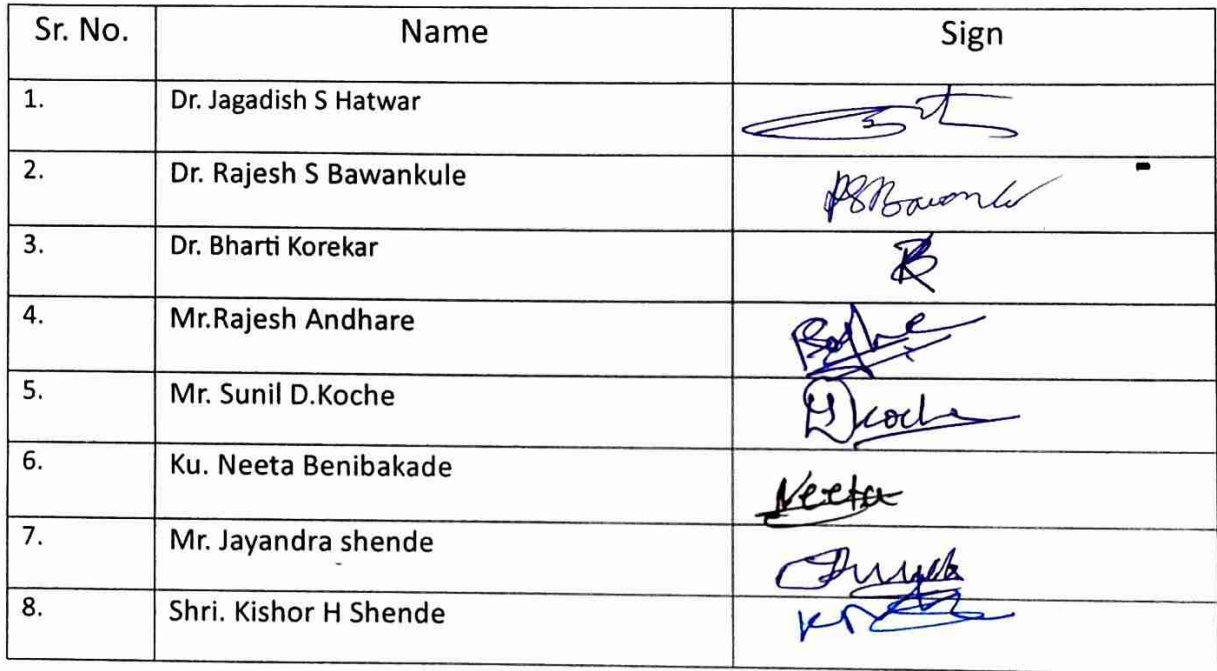 Sr. No. Name Sign
1. Dr. Jagadish S Hatwar
2. Dr. Rajesh S Bawankule
3. Dr. Bharti Korekar
4. Mr.Rajesh Andhare
5. Mr. Sunil D.Koche
6. Ku. Neeta Benibakade Neeta
7. Mr. Jayandra shende
8. Shri. Kishor H Shende